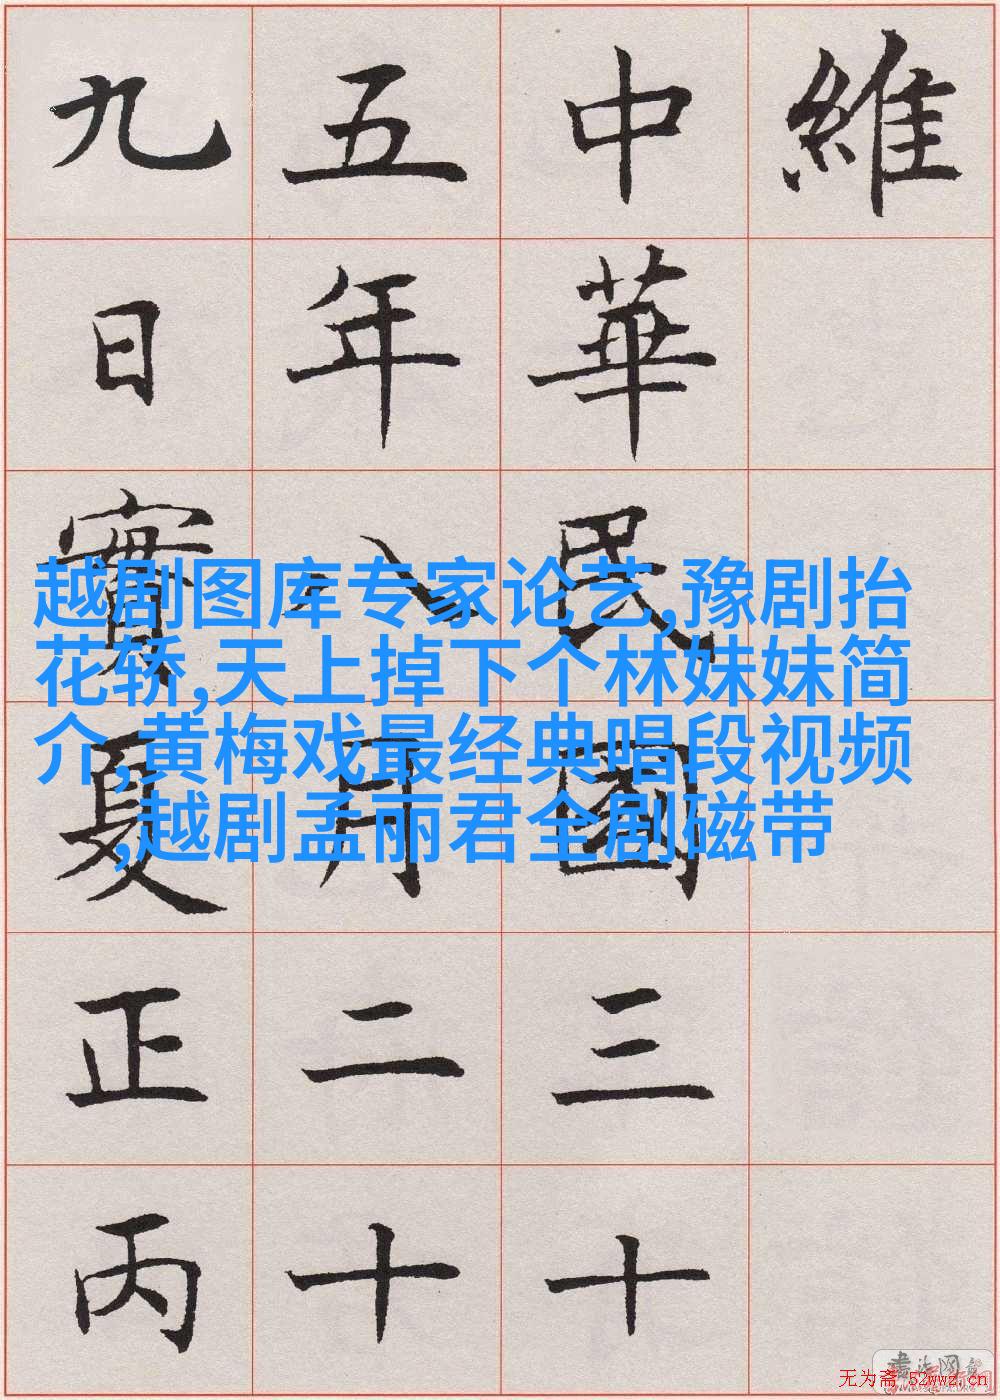 維
中華民國三十
五年八月二十
九日實夏正丙
越剧图库专家论艺,豫剧抬
花轿,天上掉下个林妹妹简
介,黄梅戏最经典唱段视频
,越剧孟丽君全剧磁带
无为斋 52wwz.cn